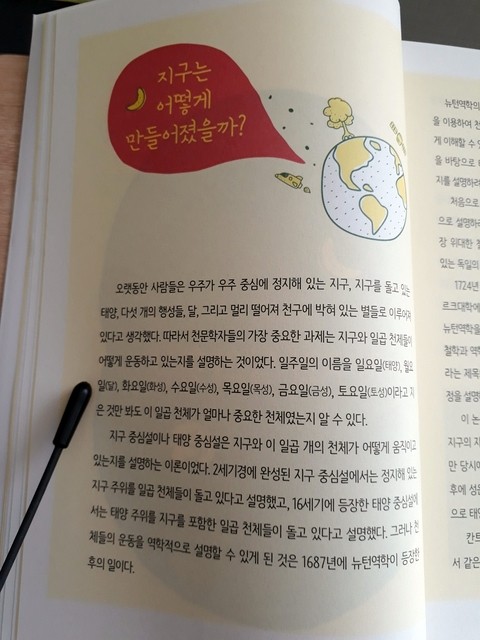 지구는
어떻게
만들어졌을까?
오랫동안 사람들은 우주가 우주 중심에 정지해 있는 지구, 지구를 돌고 있는
태양, 다섯 개의 행성들, 달, 그리고 멀리 떨어져 천구에 박혀 있는 별들로 이루어져
있다고 생각했다. 따라서 천문학자들의 가장 중요한 과제는 지구와 일곱 천체들이
어떻게 운동하고 있는지를 설명하는 것이었다. 일주일의 이름을 일요일(태양), 월요
일(달), 화요일(화성), 수요일(수성), 목요일(목성), 금요일(금성), 토요일(토성)이라고 지
은 것만 봐도 이 일곱 천체가 얼마나 중요한 천체였는지 알 수 있다.
지구 중심설이나 태양 중심설은 지구와 이 일곱 개의 천체가 어떻게 움직이고
있는지를 설명하는 이론이었다. 2세기경에 완성된 지구 중심설에서는 정지해 있는
지구 주위를 일곱 천체들이 돌고 있다고 설명했고, 16세기에 등장한 태양 중심설에
서는 태양 주위를 지구를 포함한 일곱 천체들이 돌고 있다고 설명했다. 그러나 천
체들의 운동을 역학적으로 설명할 수 있게 된 것은 1687년에 뉴턴역학이 등장한
후의 일이다.
뉴턴역학의
을 이용하여 천
게 이해할 수 있
을 바탕으로
지를 설명하려
처음으로
으로 설명하려
장 위대한 철
있는 독일의
1724년
르크대학에
뉴턴역학을
철학과 역학
라는 제목
정을 설명
이 논
지구의 지
만 당시에
후에 성운
으로 태양
칸트
서 같은